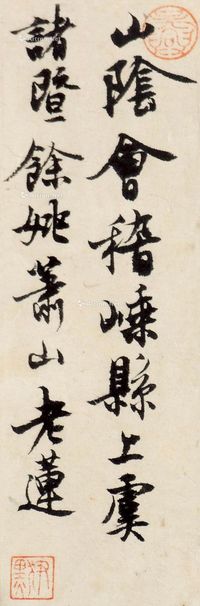 山陰會稽嵊縣上虞
諸暨餘姚蕭山老蓮